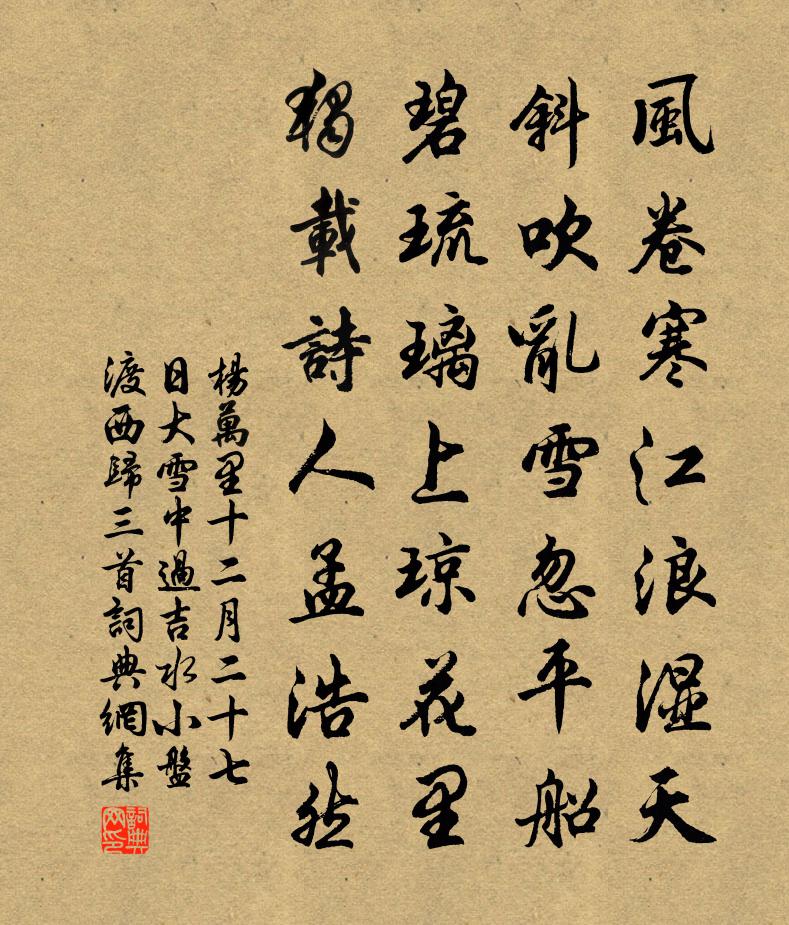 風卷寒江浪湿天
斜吹亂雪忽平船
碧琉璃上琼花里
獨載詩人孟浩然
楊萬里十二月二十七
日大雪中過吉水小盤
渡西歸三首詞典網集
詞典网印